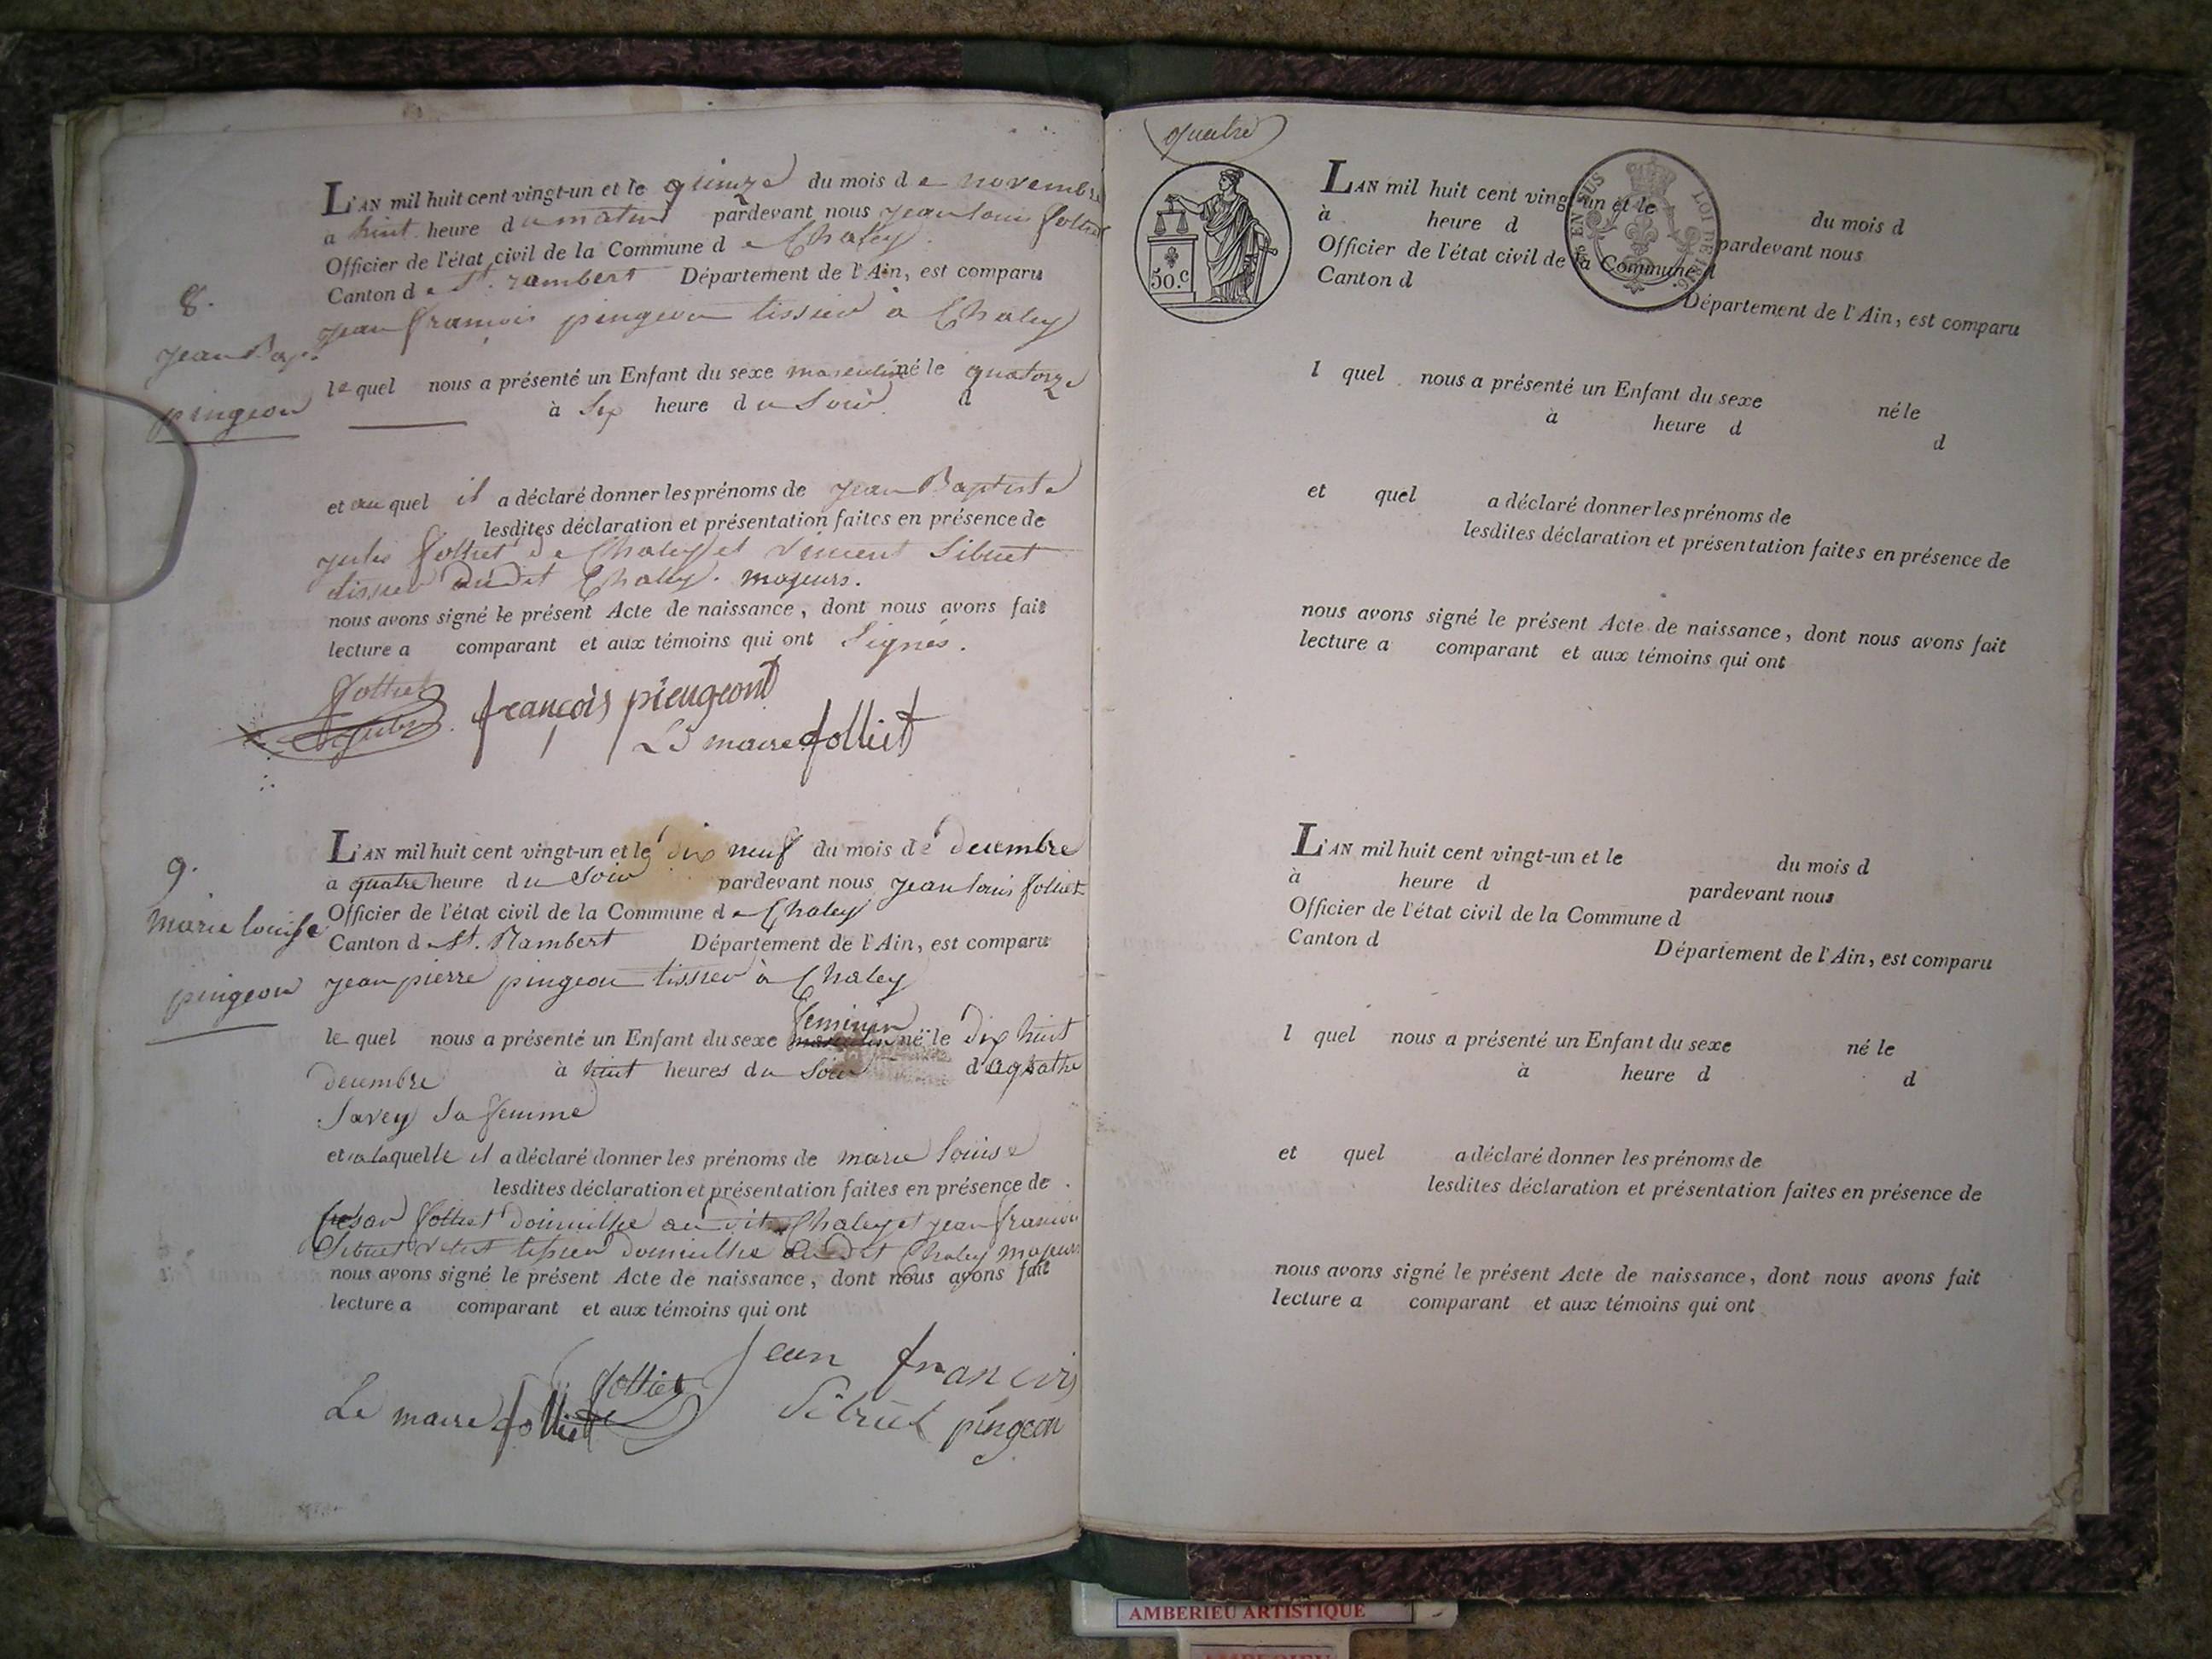 L'AN mil huit cent vingt-un et le quinze du mois de novembre
a huit heure du matin pardevant nous jean louis folliet
Officier de l'état civil de la Commune de Chaley
Canton de St. rambert Département de l'Ain, est comparu
8.
jean françois pingeon tissier à Chaley
jean Bap.te
pingeon
le quel nous a présenté un Enfant du sexe masculin né le quatorze
à six heure du soir d
et au quel il a déclaré donner les prénoms de jean Baptiste
lesdites déclaration et présentation faites en présence de
jules folliet de Chaley et vincent Sibuet
tissier dudit Chaley. majeurs.
nous avons signé le présent Acte de naissance, dont nous avons fait
lecture a comparant et aux témoins qui ont Signés.
folliet
jules
françois piengeont
Le maire folliet
9.
marie louise
pingeon
L'AN mil huit cent vingt-un et le dix neuf du mois de decembre
a quatre heure du soir pardevant nous jean louis folliet
Officier de l'état civil de la Commune de Chaley
Canton de St. Rambert Département de l'Ain, est comparu
jean pierre pingeon tissier à Chaley
feminin
le quel nous a présenté un Enfant du sexe masculin né le dix huit
decembre à huit heures du soir d'agathe
Savey sa femme
et a laquelle il a déclaré donner les prénoms de marie louise
lesdites déclaration et présentation faites en présence de
Cesar folliet domicillié au dit Chaley et jean francois
Sibuet tissier domicillié audit Chaley majeurs
nous avons signé le présent Acte de naissance, dont nous avons fait
lecture a comparant et aux témoins qui ont
Le maire folliet
folliet
jean francois
Sibuet pingeon
quatre
50.c
EN SUS
LOI DE 1816.
L'AN mil huit cent vingt-un et le du mois d
à heure d pardevant nous
Officier de l'état civil de la Commune d
Canton d Département de l'Ain, est comparu
l quel nous a présenté un Enfant du sexe né le
à heure d d
et quel a déclaré donner les prénoms de
lesdites déclaration et présentation faites en présence de
nous avons signé le présent Acte de naissance, dont nous avons fait
lecture a comparant et aux témoins qui ont
L'AN mil huit cent vingt-un et le du mois d
à heure d pardevant nous
Officier de l'état civil de la Commune d
Canton d Département de l'Ain, est comparu
l quel nous a présenté un Enfant du sexe né le
à heure d d
et quel a déclaré donner les prénoms de
lesdites déclaration et présentation faites en présence de
nous avons signé le présent Acte de naissance, dont nous avons fait
lecture a comparant et aux témoins qui ont
AMBERIEU ARTISTIQUE
AMBERIEU